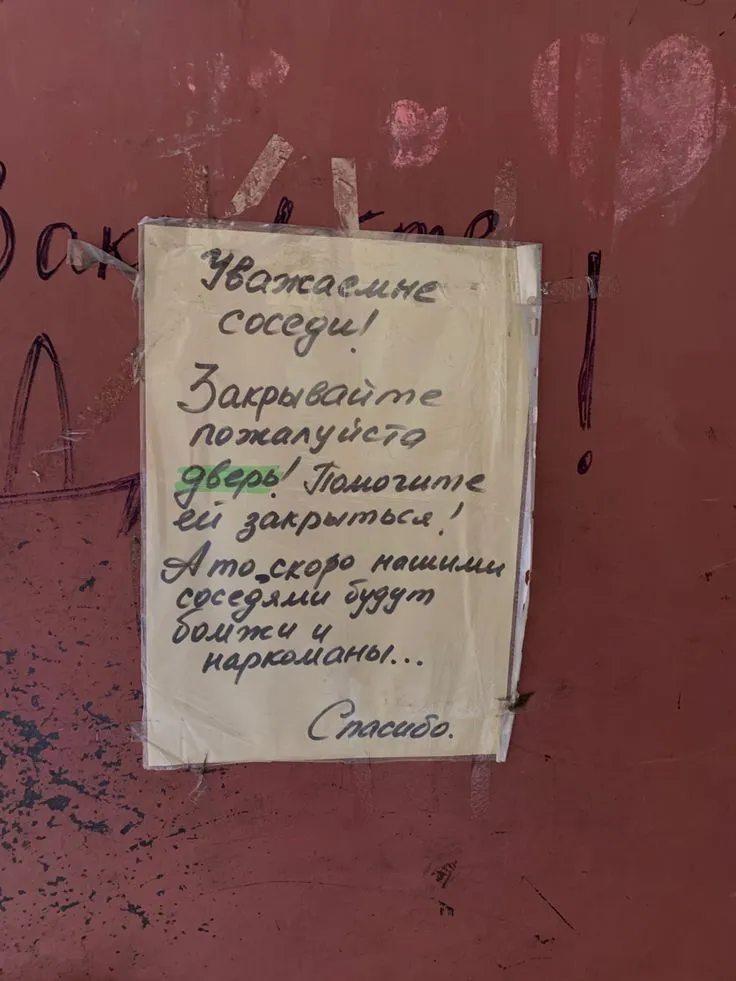 Уважаемые
соседи!
Закрывайте
пожалуйста
дверь! Помогите
ей закрыться!
А то скоро нашими
соседями будут
бомжи и
наркоманы...
Спасибо.